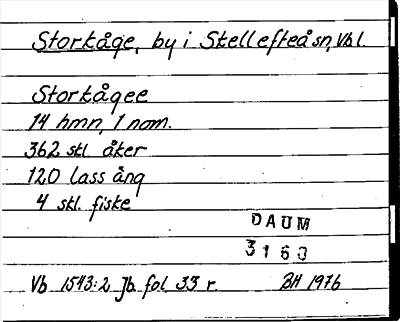 Storkåge, by i Skellefteå sn, Vbl.
Storkågee
14 hmn, 1 nom.
362 skl. åker
120 lass äng
4 skl. fiske
DAUM
3160
Vb 1543:2 Jb fol 33 r. BH 1976